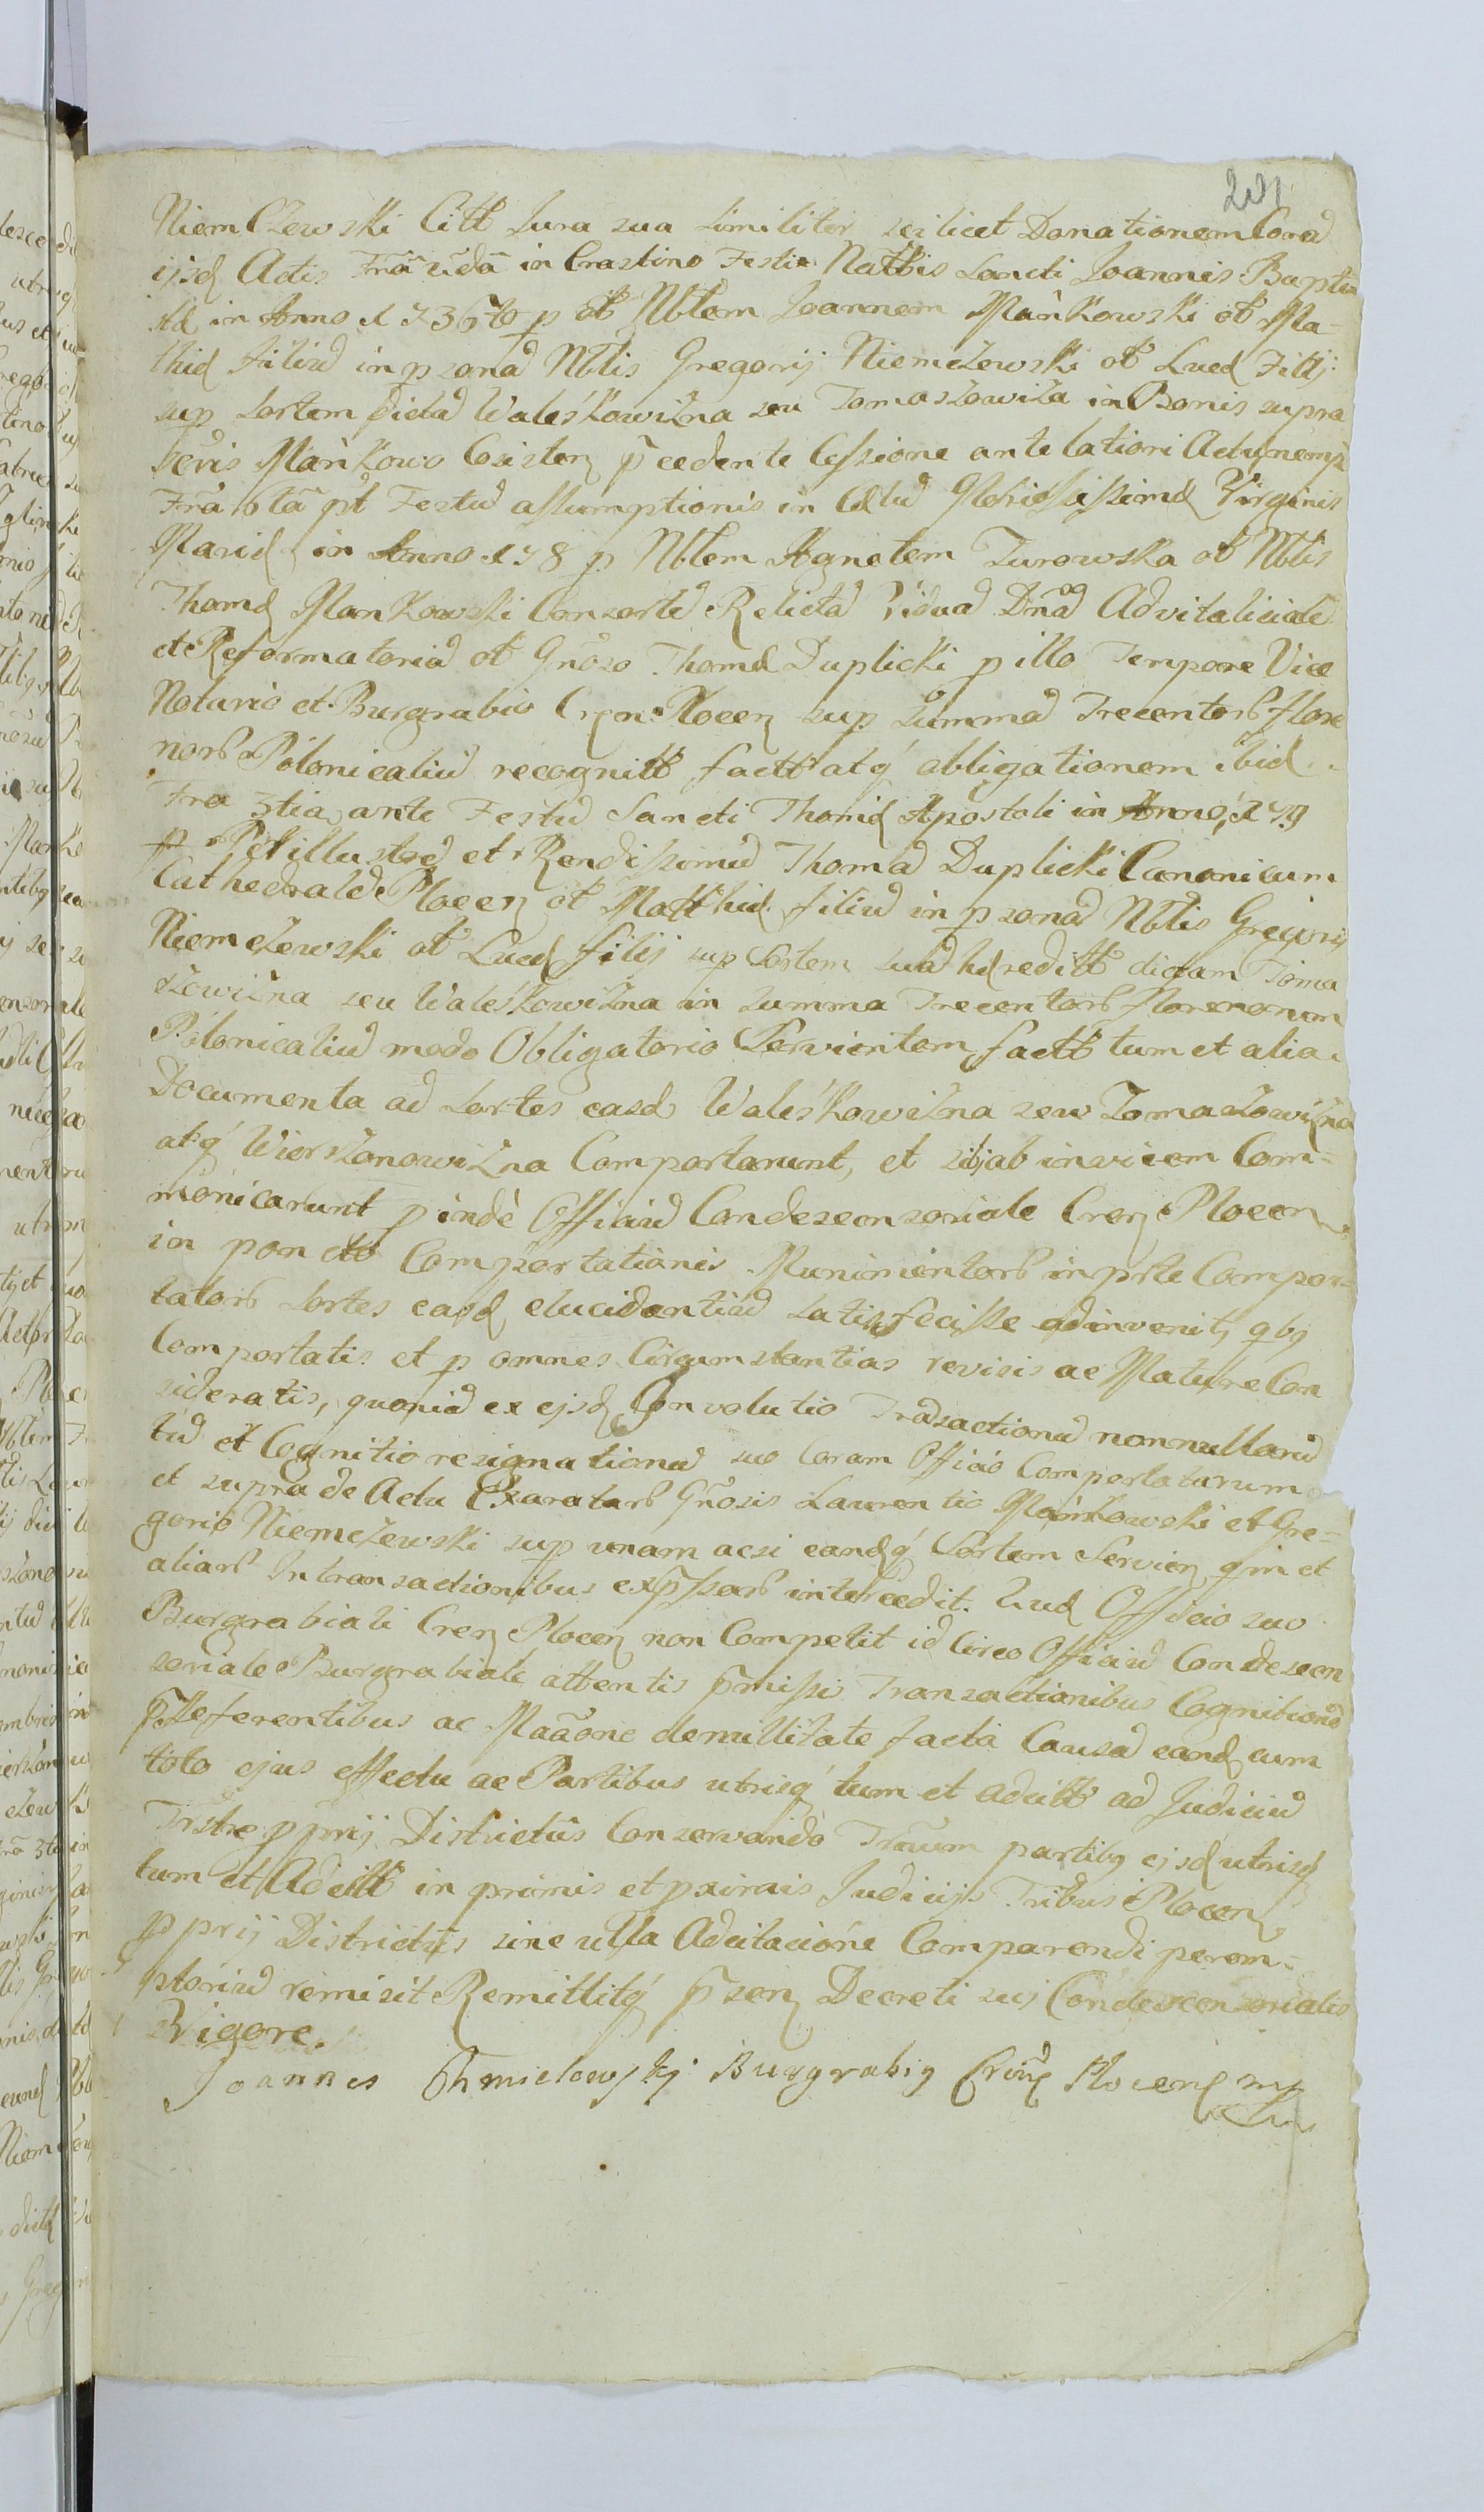 201
Niemczewski Citt Jura sua similiter scilicet Donationem Corã
ijsd Actis Frã 2dã in Crastino Festi Nattis Sancti Joannis Baptis
tæ in Anno 1736to p ot Nblem Joannem Mańkowski ot Ma-
thiæ filiũ in psonã Nblis Gregorij Niemczewski ot Lucæ Filij
sup Sortem dictã Waleśkowizna seu Tomaszowiza in Bonis supra
Mańkowo Cosisten p̃cedente Cessione antelatiori Actu nempè
Frã 6tã pt Festũ assumptionis in Cœlũ Gloriosissimæ Virginis
Mariæ in Anno 178 p Nblem Agnetem Zurowska ot Nblis
Thomæ Mankowski Consortẽ Relictã Viduã Dnã Advitaliciale
et Reformatoriã ot Gñoso Thomæ Duplicki p illo Tempore Vice
Notario et Burgrabio Cren Plocen sup Summã Trecentorb flore
norb Polonicaliũ recognitt factt atq́ obligationem ibid
Fra 3tia ante Festũ Sancti Thomæ Apostoli in Anno 179
p Périllustrẽ et Rendissimũ Thomã Duplicki Canonicum
Cathedralẽ Plocen ot Matthiæ filiũ in psonã Nblis Gregorij
Niemczewski ot Lucæ filij sup Sortem suã hæreditt dictam Toma
szowizna seu Waleśkowizna in Summa Trecentorb florenorum
Polonicaliũ modo Obligatorio Servientem factt tum et alia
Documenta ad Sortes easd Waleśkowizna seu Tomaszowizna
atq́ Wierszonowizna Comportarunt, et sibj ab invicem Com-
monicarunt pindè Officiũ Condescensoriale Cren Plocen
in poncto Comportationis Munimentorb in pñte Compor-
tatorb Sortes easd elucidantiũ satisfecisse adinvenit, qbs
Comportatis et p omnes Circumstantias revisis ac Mature Con
sideratis, quoniã ex ejsd Convolutio Trãsactionũ nonnullarũ
tũ et Cognitio resignationũ suo Coram Officio Comportatarum
et supra de Actu Exaratarb Gñosis Laurentio Mańkowski et Gre-
gorio Niemczewski sup unam acsi eandq́ Sortem Servien qm et
aliarb In transactionibus exp̃ssarb intercedit. Quæ Officio suo
Burgrabiali Cren Plocen non Competit id Circo Officiũ Condescen
soriale Burgrabiale attentis p̃missis Transactionibus Cognitionẽ
Referentibus ac Maãone de nullitate factâ Causã eand cum
toto ejus effectu ac Partibus utrisq́ tum et adcitt ad Judiciũ
Trstre pprij Districtûs Conservando Trãum partibs ejsd utrisq́
tum et Adcitt in primis et pximis Judicijs Tribus Plocen
pprij Districtûs sine ulla Adcitacione Comparendi perem-
ptoriũ remisit Remittitq́ p̃sen Decreti sui Condescensorialis
Rigore.
Joannes Chmielewskj Burgrabig Plocen mp